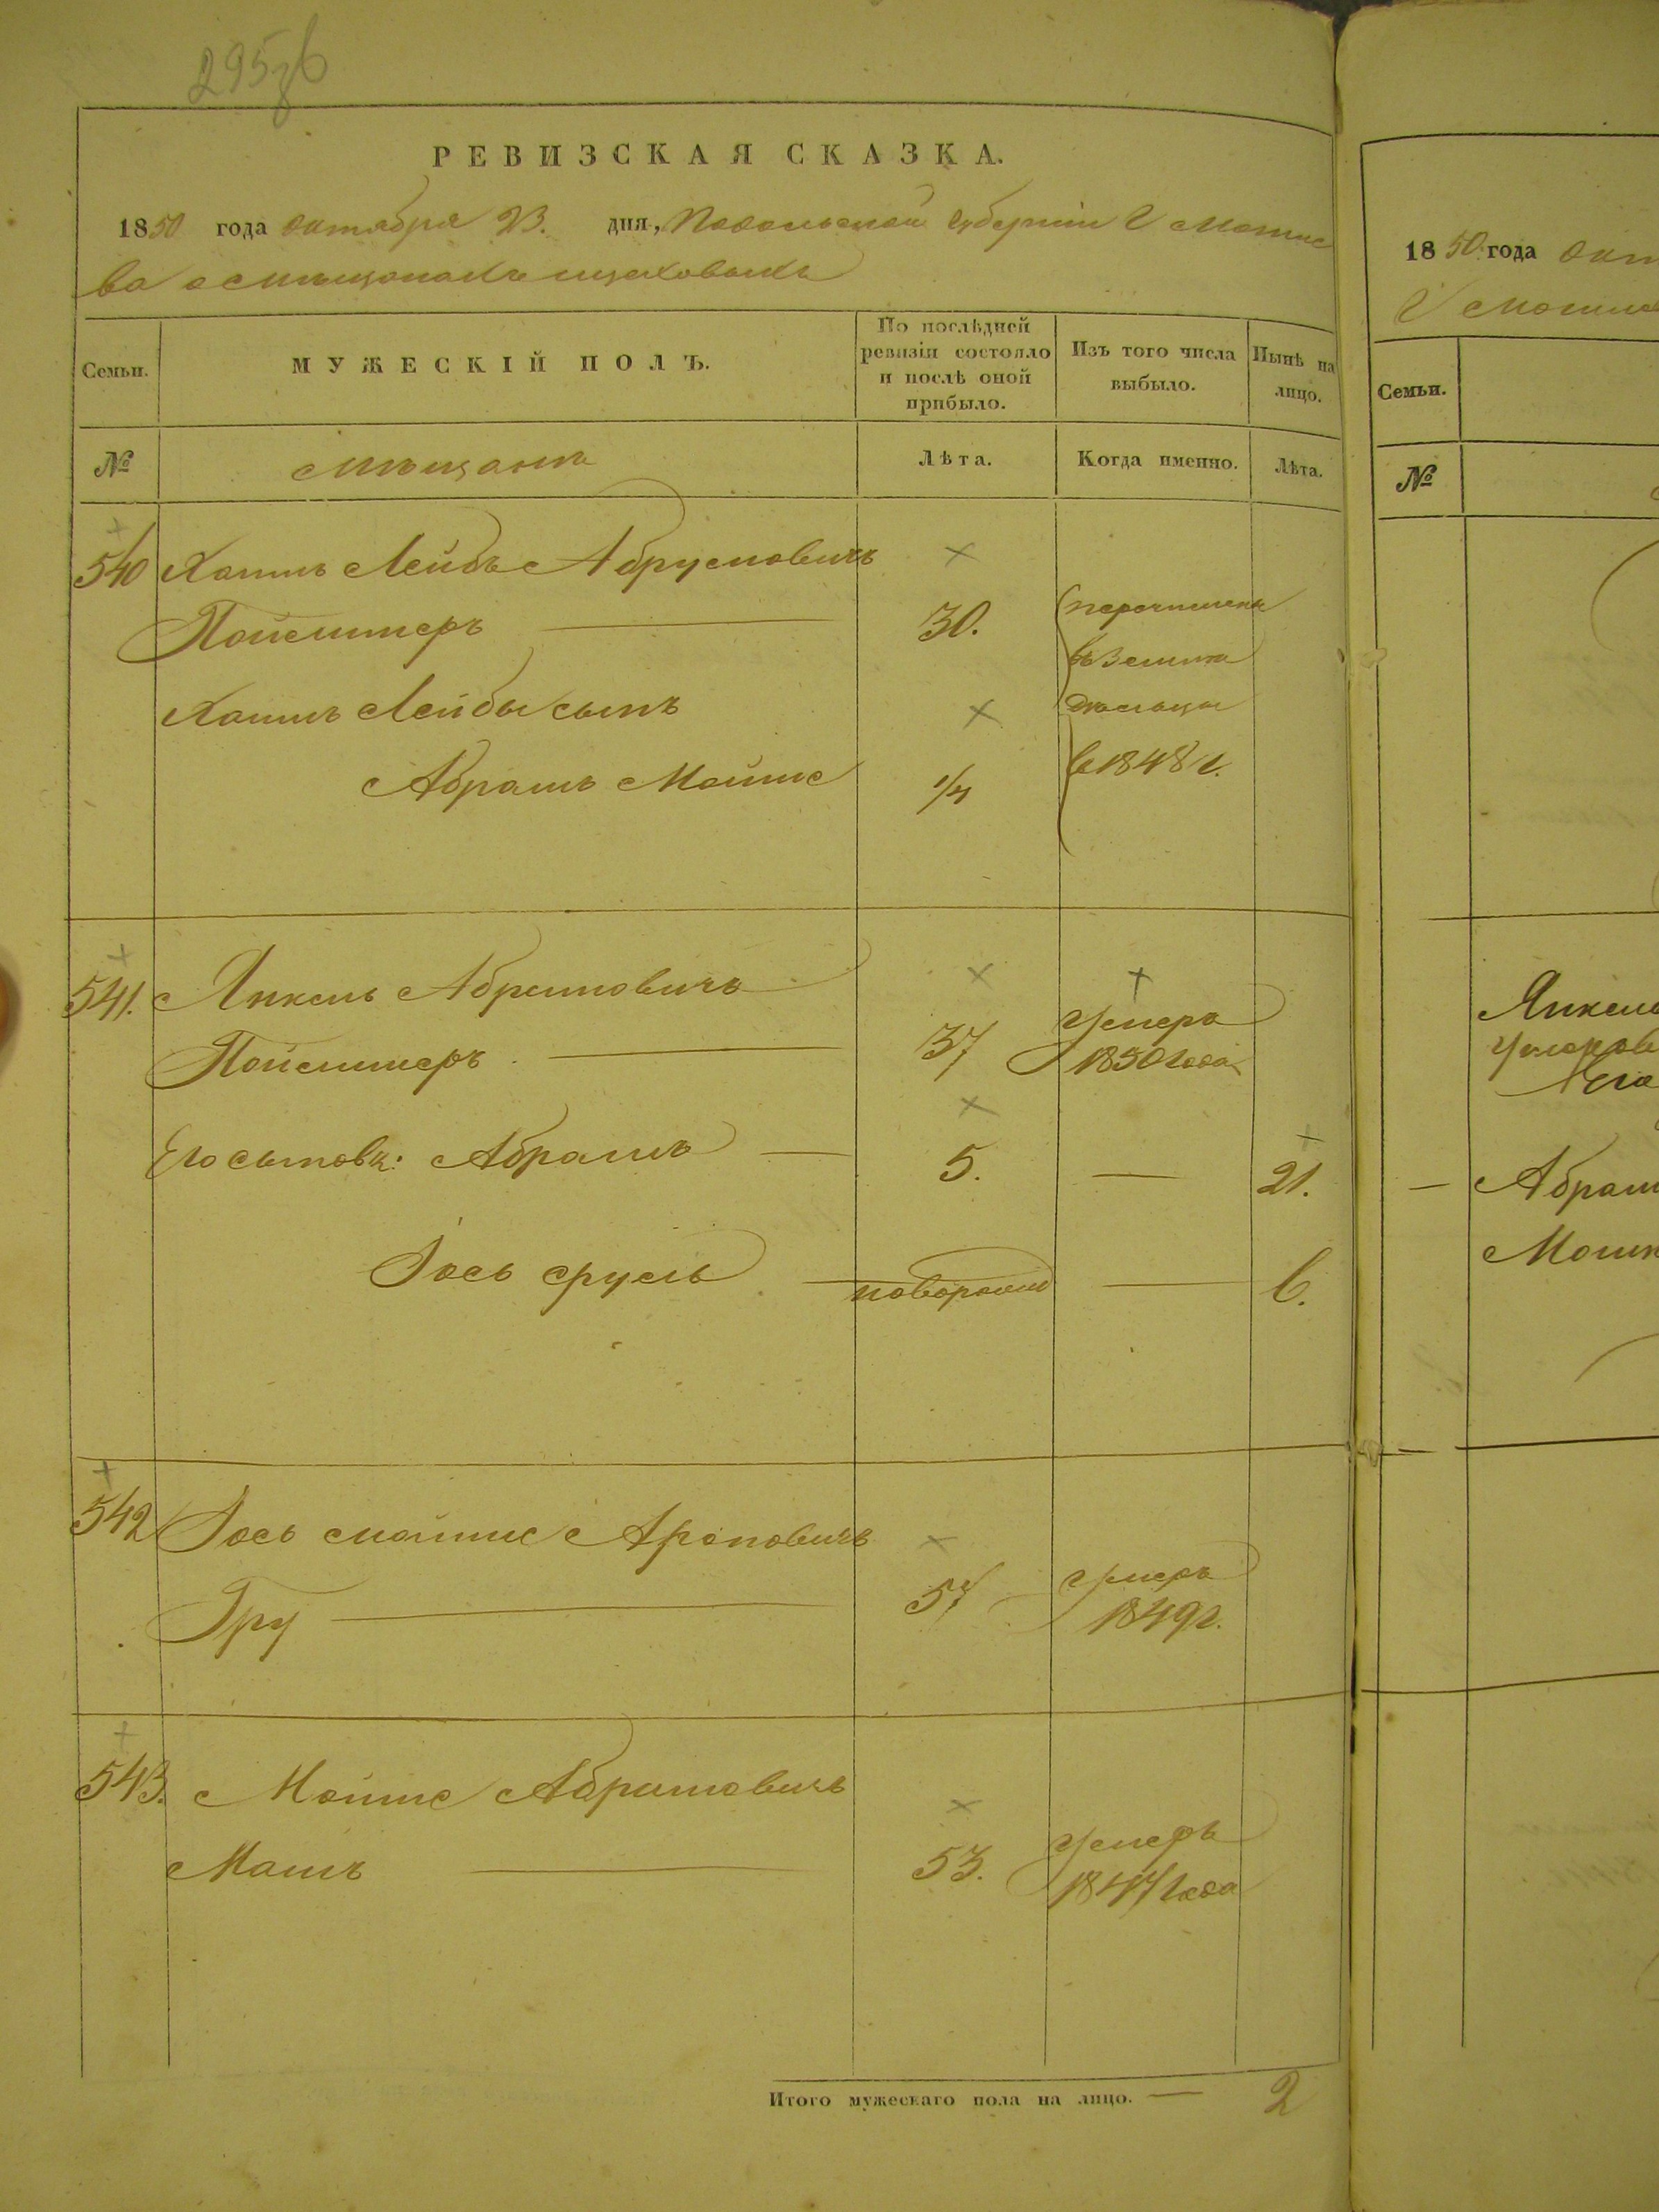 295об
РЕВИЗСКАЯ СКАЗКА.
1850 года октября 23. дня, Подольской губернии г Могиле
ва о мѣщанахъ
Семьи.
МУЖЕСКІЙ ПОЛЪ.
По послѣдней ревизіи состояло и послѣ оной прибыло.
Изъ того числа выбыло.
Нынѣ на лицо.
№
мѣщане
Лѣта.
Когда именно.
Лѣта.
540 Хаимъ Лейбъ Абрумовичъ
Пойсштеръ — 30. перечисленъ
въ
Хаимъ Лейбы сынъ
Абрамъ Мойше 1/4 в 1848 г.
541. Янкель Абрамовичъ
Пойсштеръ — 37 умеръ 1850 года
Его сыновья: Абрамъ — 5. — 21.
Іось Сруль — новорожд — 6.
542 Іось Мойше Ароновичъ
Гру — 57 умеръ 1849 г.
543. Мойше Абрамовичъ
Машъ — 53. умеръ 1847 года
Итого мужескаго пола на лицо. — 2
1850 года окт
г Могиле
Семьи.
№
Янкель
Его
— Абрам
Мошк